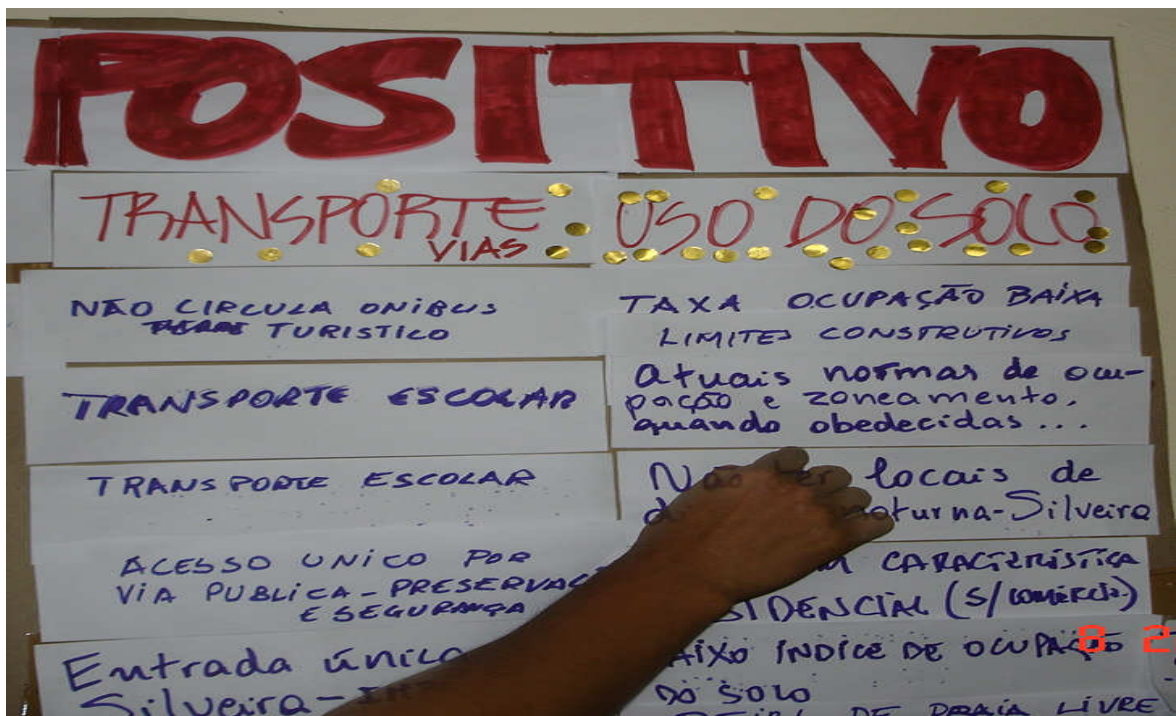 POSITIVO
TRANSPORTE
VIAS
NÃO CIRCULA ONIBUS
TURISTICO
TRANSPORTE ESCOLAR
TRANSPORTE ESCOLAR
ACESSO UNICO POR
VIA PUBLICA - PRESERVAÇ
E SEGURANÇA
Entrada única
Silveira -
USO DO SOLO
TAXA OCUPAÇÃO BAIXA
LIMITES CONSTRUTIVOS
Atuais normas de ocu-
pação e zoneamento,
quando obedecidas...
Não ter locais de
noturna - Silveira
CARACTERISTICA
SIDENCIAL (S/ COMÉRCIO)
AIXO INDICE DE OCUPAÇÃO
DO SOLO
DE PRAIA LIVRE
8 2